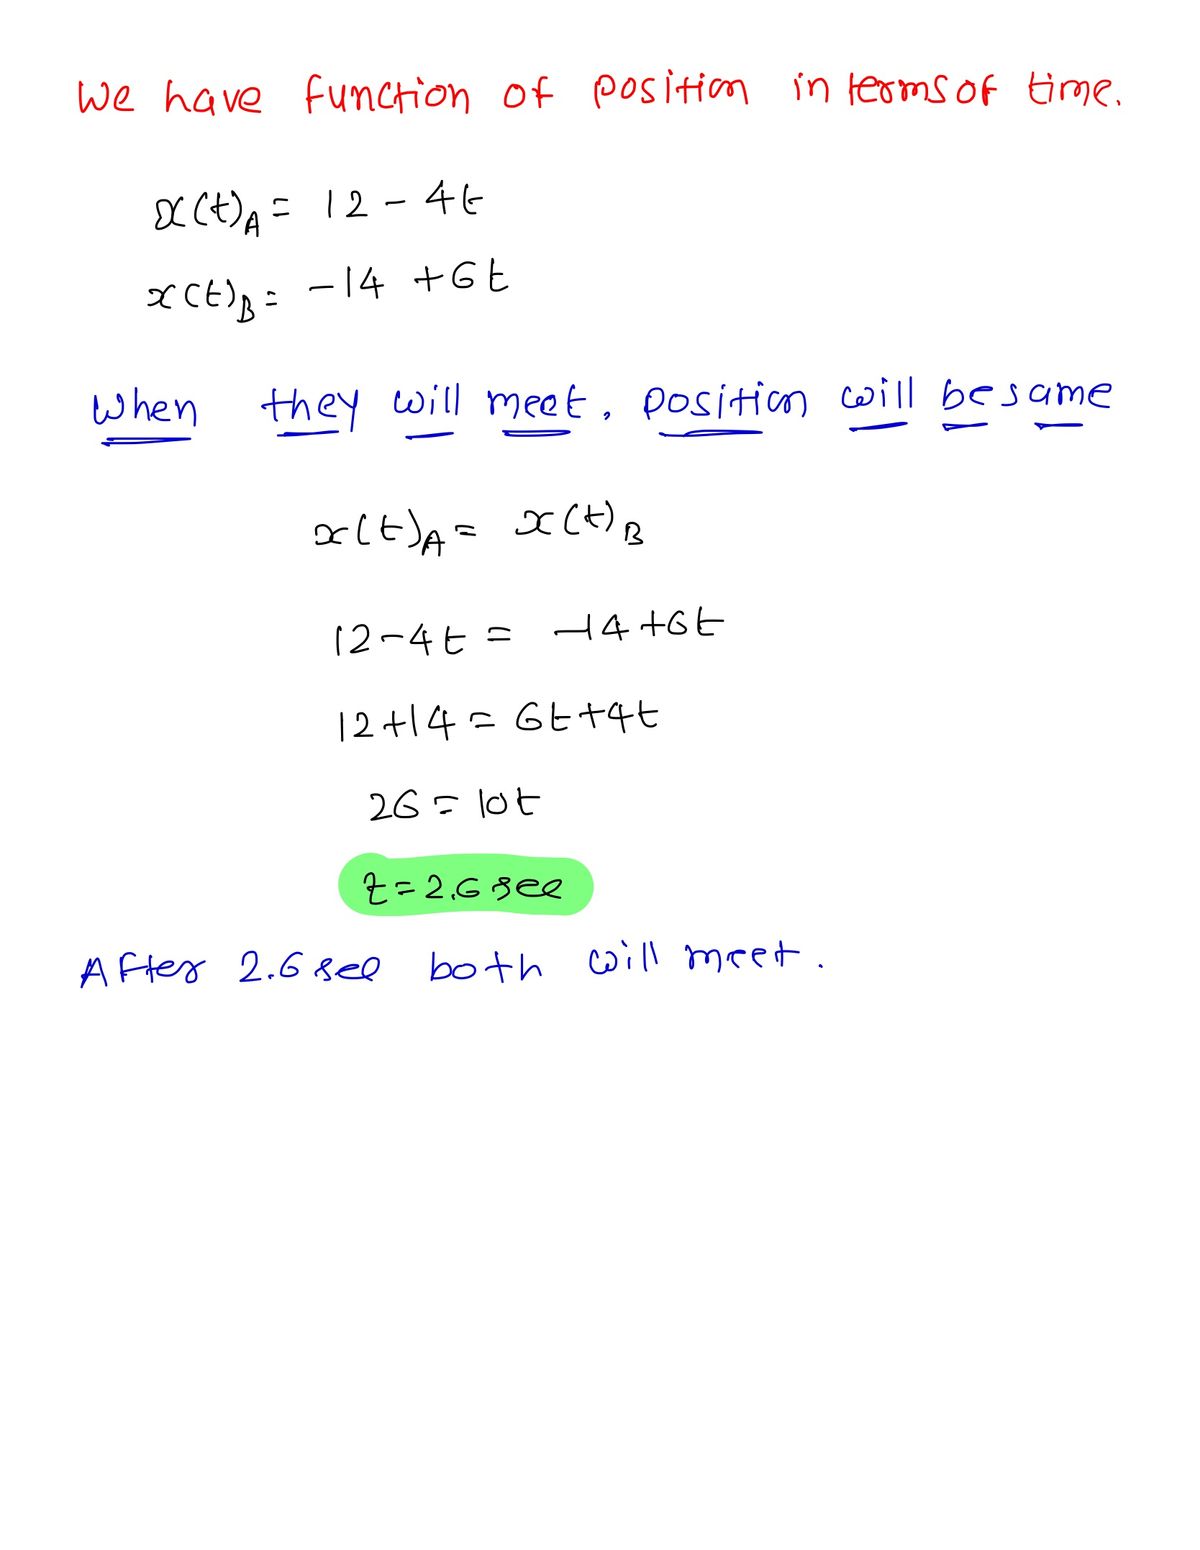 We have function of position in terms of time.
x(t)A = 12 - 4t
x(t)B = -14 + 6t
When they will meet, position will be same
x(t)A = x(t)B
12-4t = -14+6t
12+14 = 6t+4t
26 = 10t
t = 2.6 sec
After 2.6 sec both will meet.